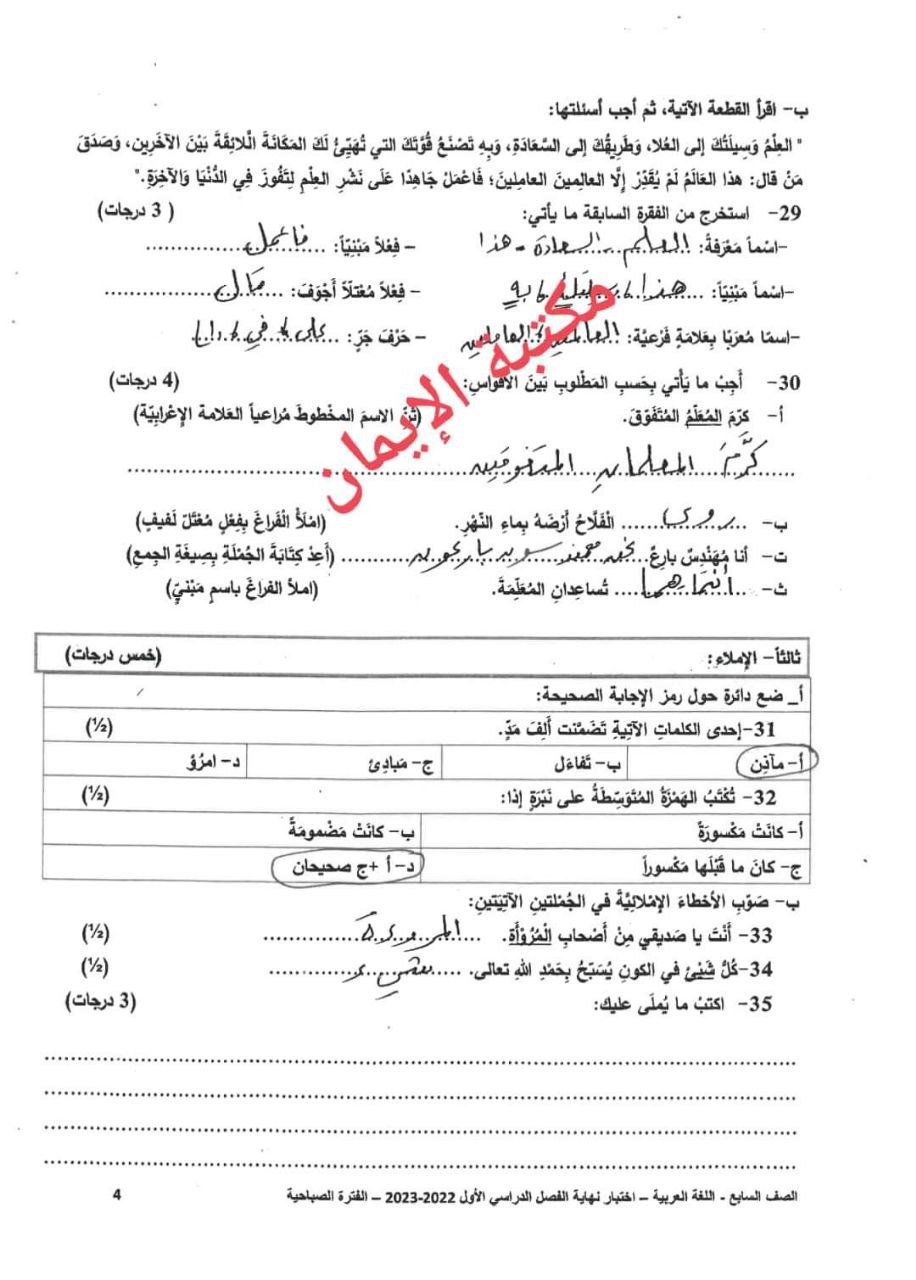 ب- اقرأ القطعة الآتية، ثم أجب أسئلتها:
" العِلْمُ وَسِيلَتُكَ إلى العُلا، وَطَرِيقُكَ إلى السَّعَادَةِ، وَبِهِ تَصْنَعُ قُوَّتَكَ التي تُهَيِّئُ لَكَ المَكَانَةَ الْلائِقَةَ بَيْنَ الآخَرِين، وَصَدَقَ
مَنْ قال: هذا العَالَمُ لَمْ يُقَدِّرْ إلَّا العالِمِينَ العامِلِينَ؛ فَاعْمَلْ جَاهِدًا عَلَى نَشْرِ العِلْمِ لِتَفُوزَ فِي الدُّنْيَا وَالآخِرَةِ."
29- استخرج من الفقرة السابقة ما يأتي: ( 3 درجات)
-اسْماً مَعْرِفَةً: العلم - السعادة - هذا - فِعْلاً مَبْنِيّاً: فاعمل
-اسْماً مَبْنِيّاً: هذا ، ، به - فِعْلاً مُعْتَلّاً أَجْوَفَ: قال
-اسمًا مُعرَبًا بِعَلامَةٍ فَرْعيّة: العالمين ، العاملين - حَرْفَ جَرّ: على ، في ،
30- أَجِبْ ما يَأْتي بِحَسبِ المَطْلوبِ بَيْنَ الأقْواسِ: (4 درجات)
أ- كرّمَ المُعَلّمُ المُتَفَوّقَ. (ثَنِّ الاسمَ المخْطوطَ مُراعياً العَلامة الإعْرابِيّة)
كرَّمَ المعلمانِ المتفوقين
ب- يروي الْفَلَّاحُ أَرْضَهُ بِماءِ النّهْرِ. (امْلَأْ الْفَراغَ بِفِعْلٍ مُعْتَلّ لَفيفٍ)
ت- أنا مُهَنْدِسٌ بارِعٌ. نحن مهندسون بارعون (أَعِدْ كِتابَةَ الجُمْلَةِ بِصيغَةِ الجمعِ)
ث- أنتما هما تُساعِدانِ المُعَلِّمَةَ. (املأ الفراغَ باسمٍ مَبْنيٍّ)
ثالثاً- الإملاء: (خمس درجات)
أ_ ضع دائرة حول رمز الإجابة الصحيحة:
31-إحدى الكلماتِ الآتِيةِ تَضَمَّنت أَلِفَ مَدٍّ. (½)
أ- مآذِن ب- تَفاءَل ج- مَبادِئ د- امرُؤ
32- تُكْتَبُ الهَمْزَةُ المُتَوَسِّطَةُ على نَبْرَةٍ إذا: (½)
أ- كانَتْ مَكْسورَةً ب- كانَتْ مَضْمومَةً
ج- كانَ ما قَبْلَها مَكْسوراً د- أ +ج صحيحان
ب- صَوِّبِ الأخطاءَ الإمْلائِيَّةَ في الجُمْلَتينِ الآتِيَتينِ:
33- أَنْتَ يا صَديقي مِنْ أَصْحابِ الْمُرُوْأَةِ. المروءة (½)
34-كُلُّ شَيْئٍ في الكونِ يُسَبِّحُ بِحَمْدِ اللهِ تعالى. شيء (½)
35- اكتبْ ما يُملَى عليك: (3 درجات)
الصف السابع - اللغة العربية – اختبار نهاية الفصل الدراسي الأول 2022-2023 – الفترة الصباحية 4
مكتبة الإيمان